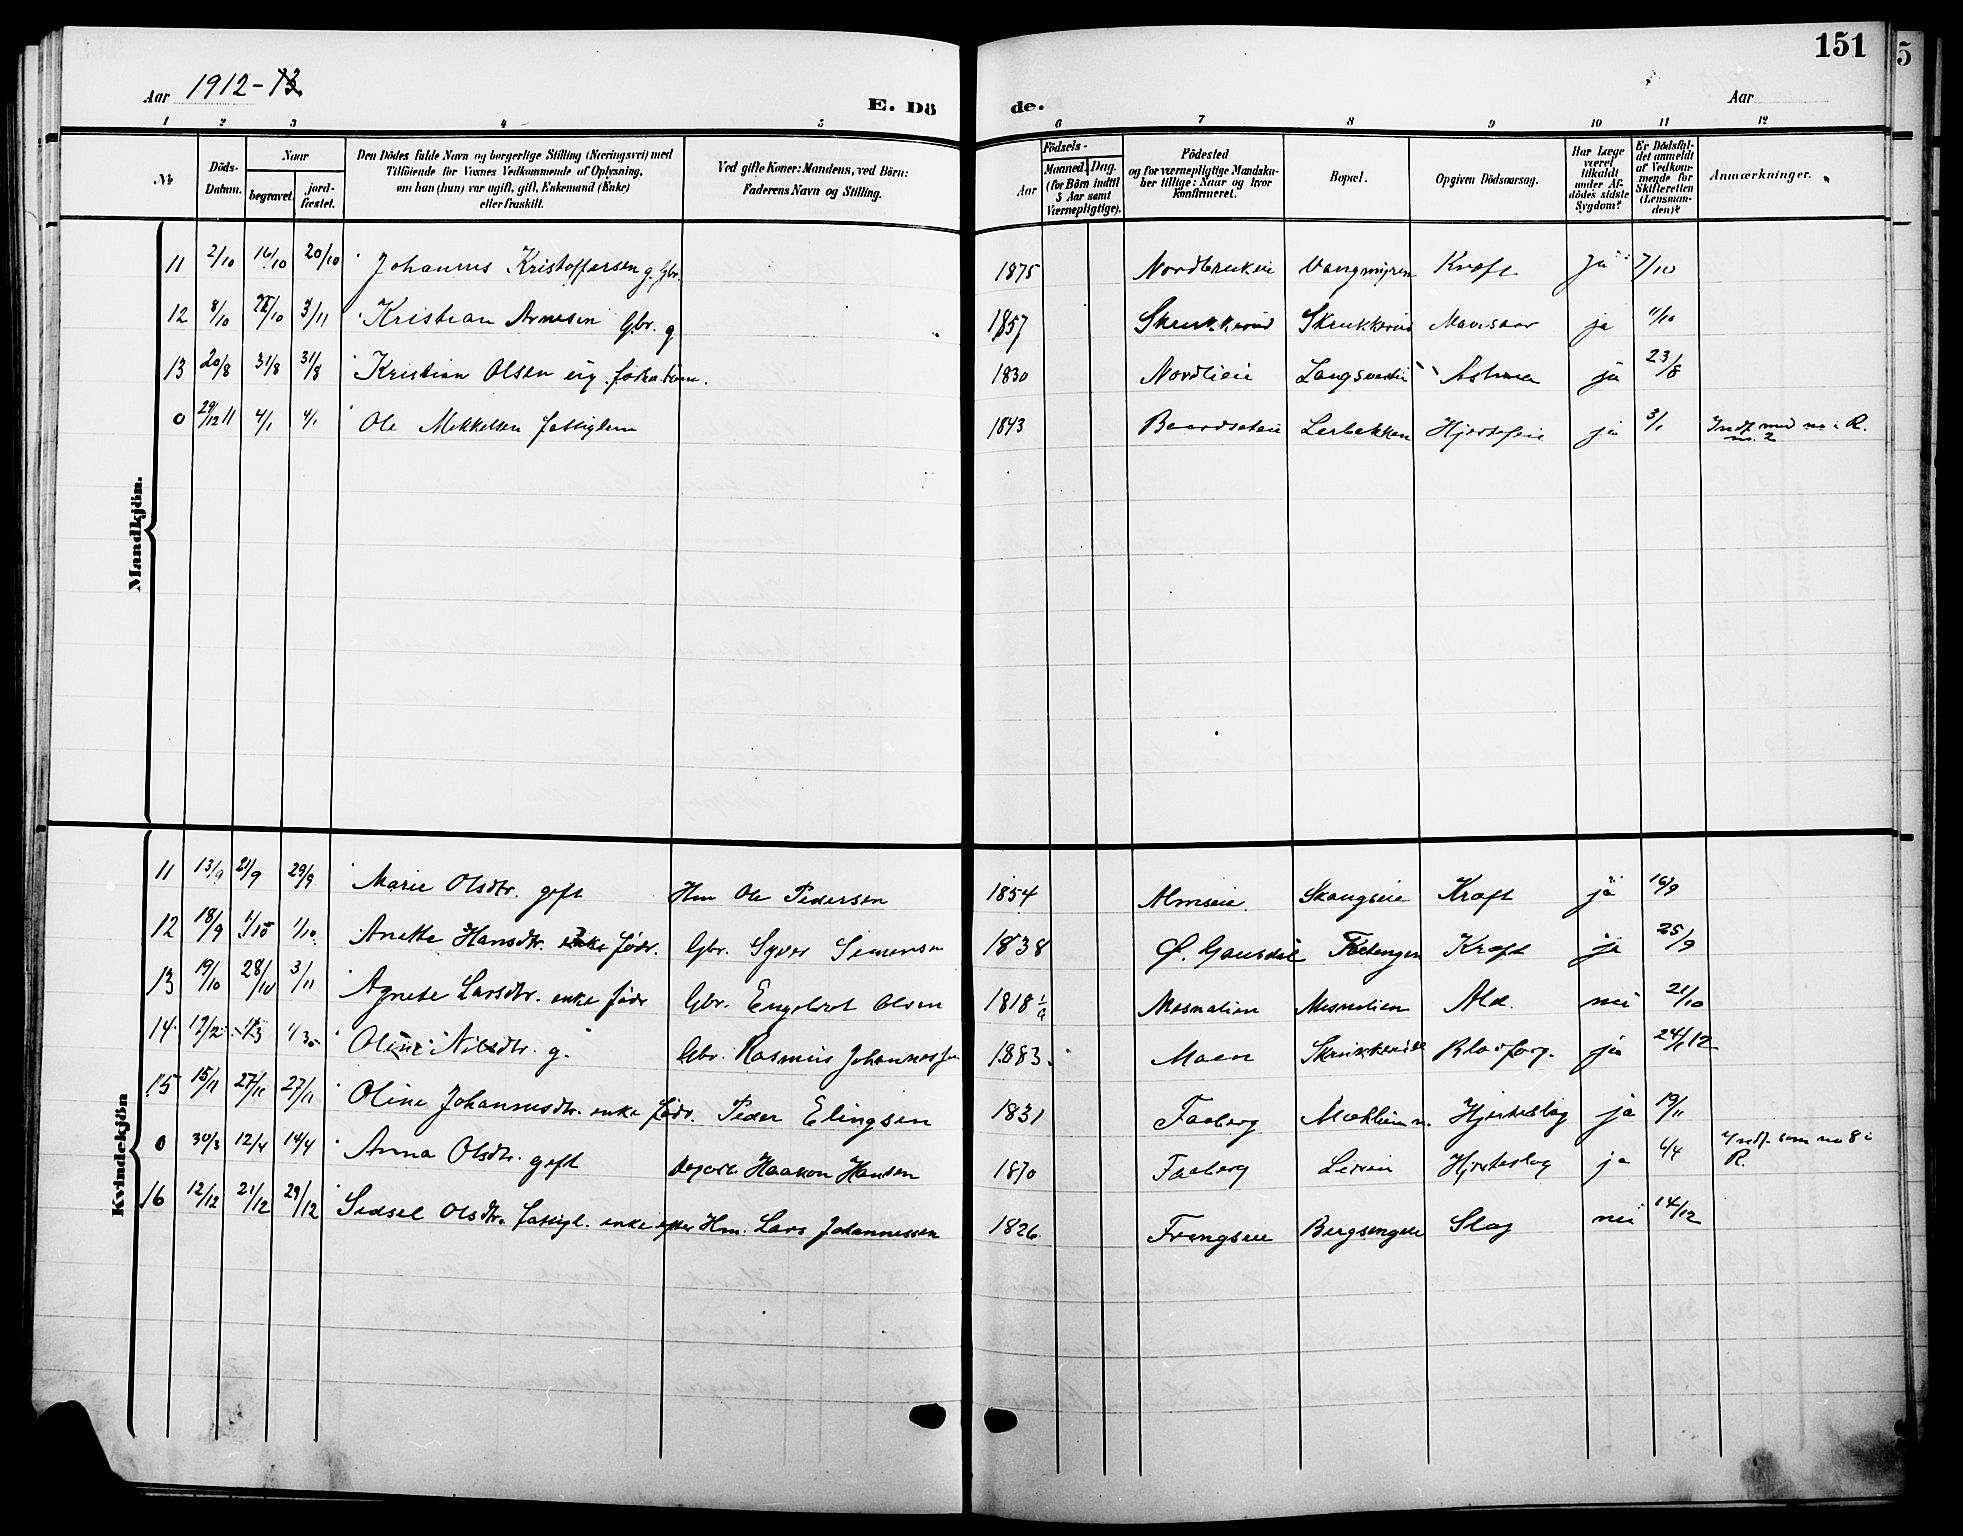 151
5
Aar 1912-13
E. Dö
de.
Aar
1 2 3 4 5 6 7 8 9 10 11 12
№
Döds-
Datum.
Naar
begravet.
jord-
fæstet.
Den Dödes fulde Navn og borgerlige Stilling (Næringsvei) med
Tilföiende for Voxnes Vedkommende af Oplysning,
om han (hun) var ugift, gift, Enkemand (Enke)
eller fraskilt.
Ved gifte Koner: Mandens, ved Börn:
Faderens Navn og Stilling.
Födsels-
Aar
Maaned. Dag.
(for Börn indtil
5 Aar samt
Værnepligtige).
Födested
og for værnepligtige Mandska-
ber tillige: Naar og hvor
konfirmeret.
Bopæl.
Opgiven Dödsaarsag.
Har Læge
været
tilkaldt
under Af-
dödes sidste
Sygdom?
Er Dödsfal-
det anmeldt
af Vedkom-
mende for
Skifteretten
(Lensman-
den)?
Anmærkninger.
Mandkjön.
11 2/10 16/10 20/10 Johannes Kristoffersen g. Gbr. 1875 Vangmyren Kræft ja 7/10
12 8/10 3/11 Kristian Arnesen Gbr. g 1857 Skrukkerud Skrukkerud ja 11/10
13 20/8 31/8 31/8 Kristian Olsen 1830 Nordlieie Astma ja 23/8
0 29/12 11 4/1 4/1 Ole Mikkelsen fattiglem 1843 Baardseteie Lerbakken Hjertefeil ja 3/1 Indf. med no i R.
no. 2
Kvindekjön
11 13/9 21/9 29/9 Marie Olsdtr. gift Hm Ole Pedersen 1854 Almseie. Skougseie Kræft ja 16/9
12 18/9 1/10 1/10. Anette Hansdtr. enke fødr. Gbr. Syver Simensen 1838 Ø. Gausdal Kræft ja 25/9
13 19/10 28/10 3/11 Agnete Larsdtr. enke fødr Gbr. Engebret Olsen 1818 Mesnalien Mesnalien Ald. nei 21/10
14 17/2 Oline Nilsdtr. g. Gbr. Rasmus Johannessen 1883. Moen Blodforg. ja
15 15/11 27/11 27/11 Oline Johannesdtr. enke fødr. Peder Elingsen 1831 Faaberg Hjerteslag ja 19/11
0 30/3 12/4 14/4 Anna Olsdtr. gift Haakon Hansen 1870 Faaberg Hjerteslag ja 4/4 Indf. som no 8 i
R.
16 12/12 21/12 29/12 Sidsel Olsdtr. fattigl. enke efter Hm. Lars Johannessen 1826. Bergsengeie Slag nei 14/12